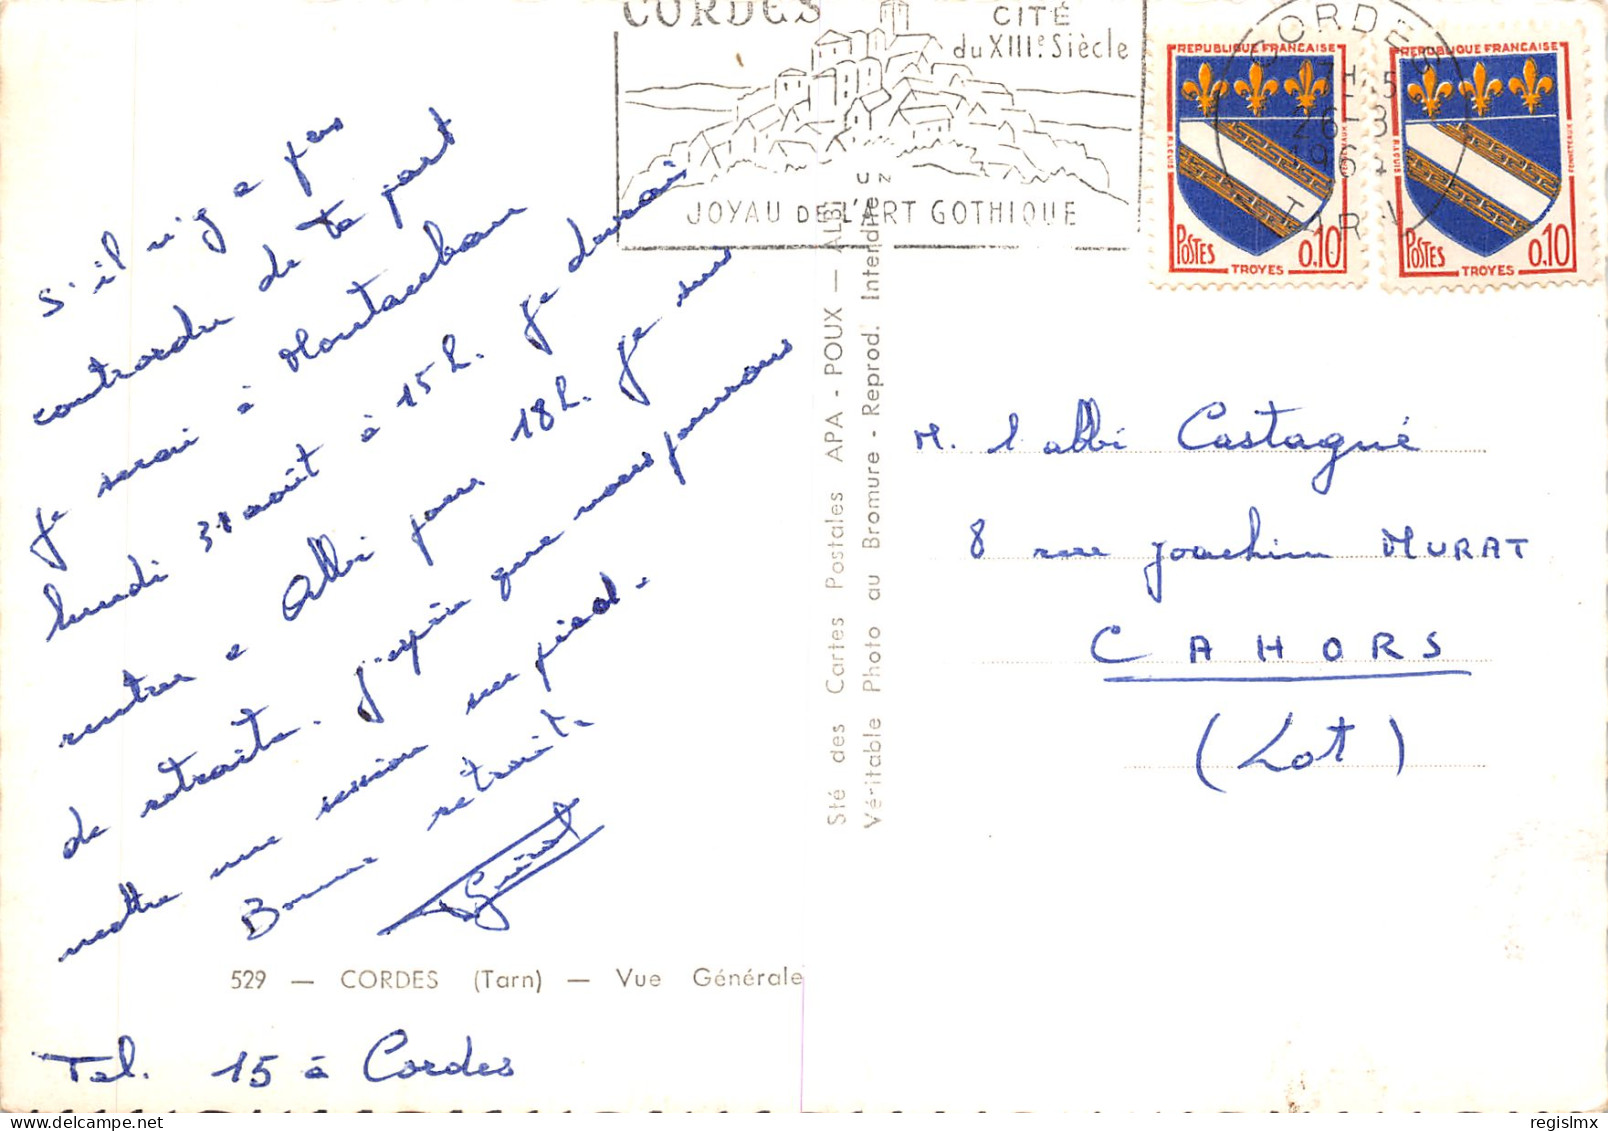 CORDES
CITÉ
du XIIIe Siècle
JOYAU DE L'ART GOTHIQUE
CORDES
26-8
196
TARN
REPUBLIQUE FRANÇAISE
POSTES 0,10
TROYES
REPUBLIQUE FRANÇAISE
POSTES 0,10
TROYES
s'il n'y a pas
contrordre de ta part
je serai à Montauban
lundi 31 août à 15 h. je devrai
rentrer à Albi pour 18 h. je suis
de retraite. j'espère que nous pourrons
mettre une session sur pied.
Bonne retraite
529 — CORDES (Tarn) — Vue Générale
Tel. 15 à Cordes
Sté des Cartes Postales APA - POUX — ALBI
Véritable Photo au Bromure - Reprod. Interdite
M. l'abbé Castagné
8 rue Joachim MURAT
CAHORS
(Lot)
regislmx